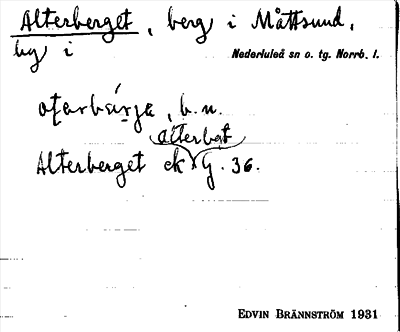 Alterberget, berg i Måttsund,
by i Nederluleå sn o. tg. Norrb. l.
b. n.
alterbat
Alterberget ek G. 36.
EDVIN BRÄNNSTRÖM 1931